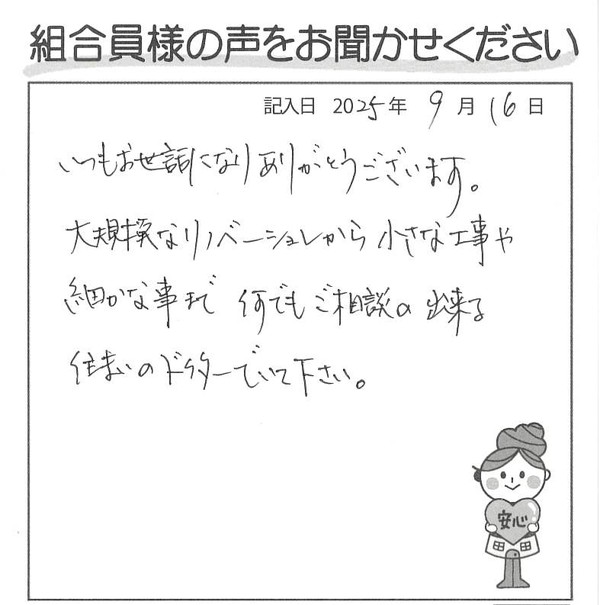 組合員様の声をお聞かせください
記入日 2025年 9月 16日
いつもお世話になりありがとうございます。
大規模なリノベーションから 小さな工事や
細かな事まで 何でもご相談の出来る
住まいのドクターでいて下さい。
安心